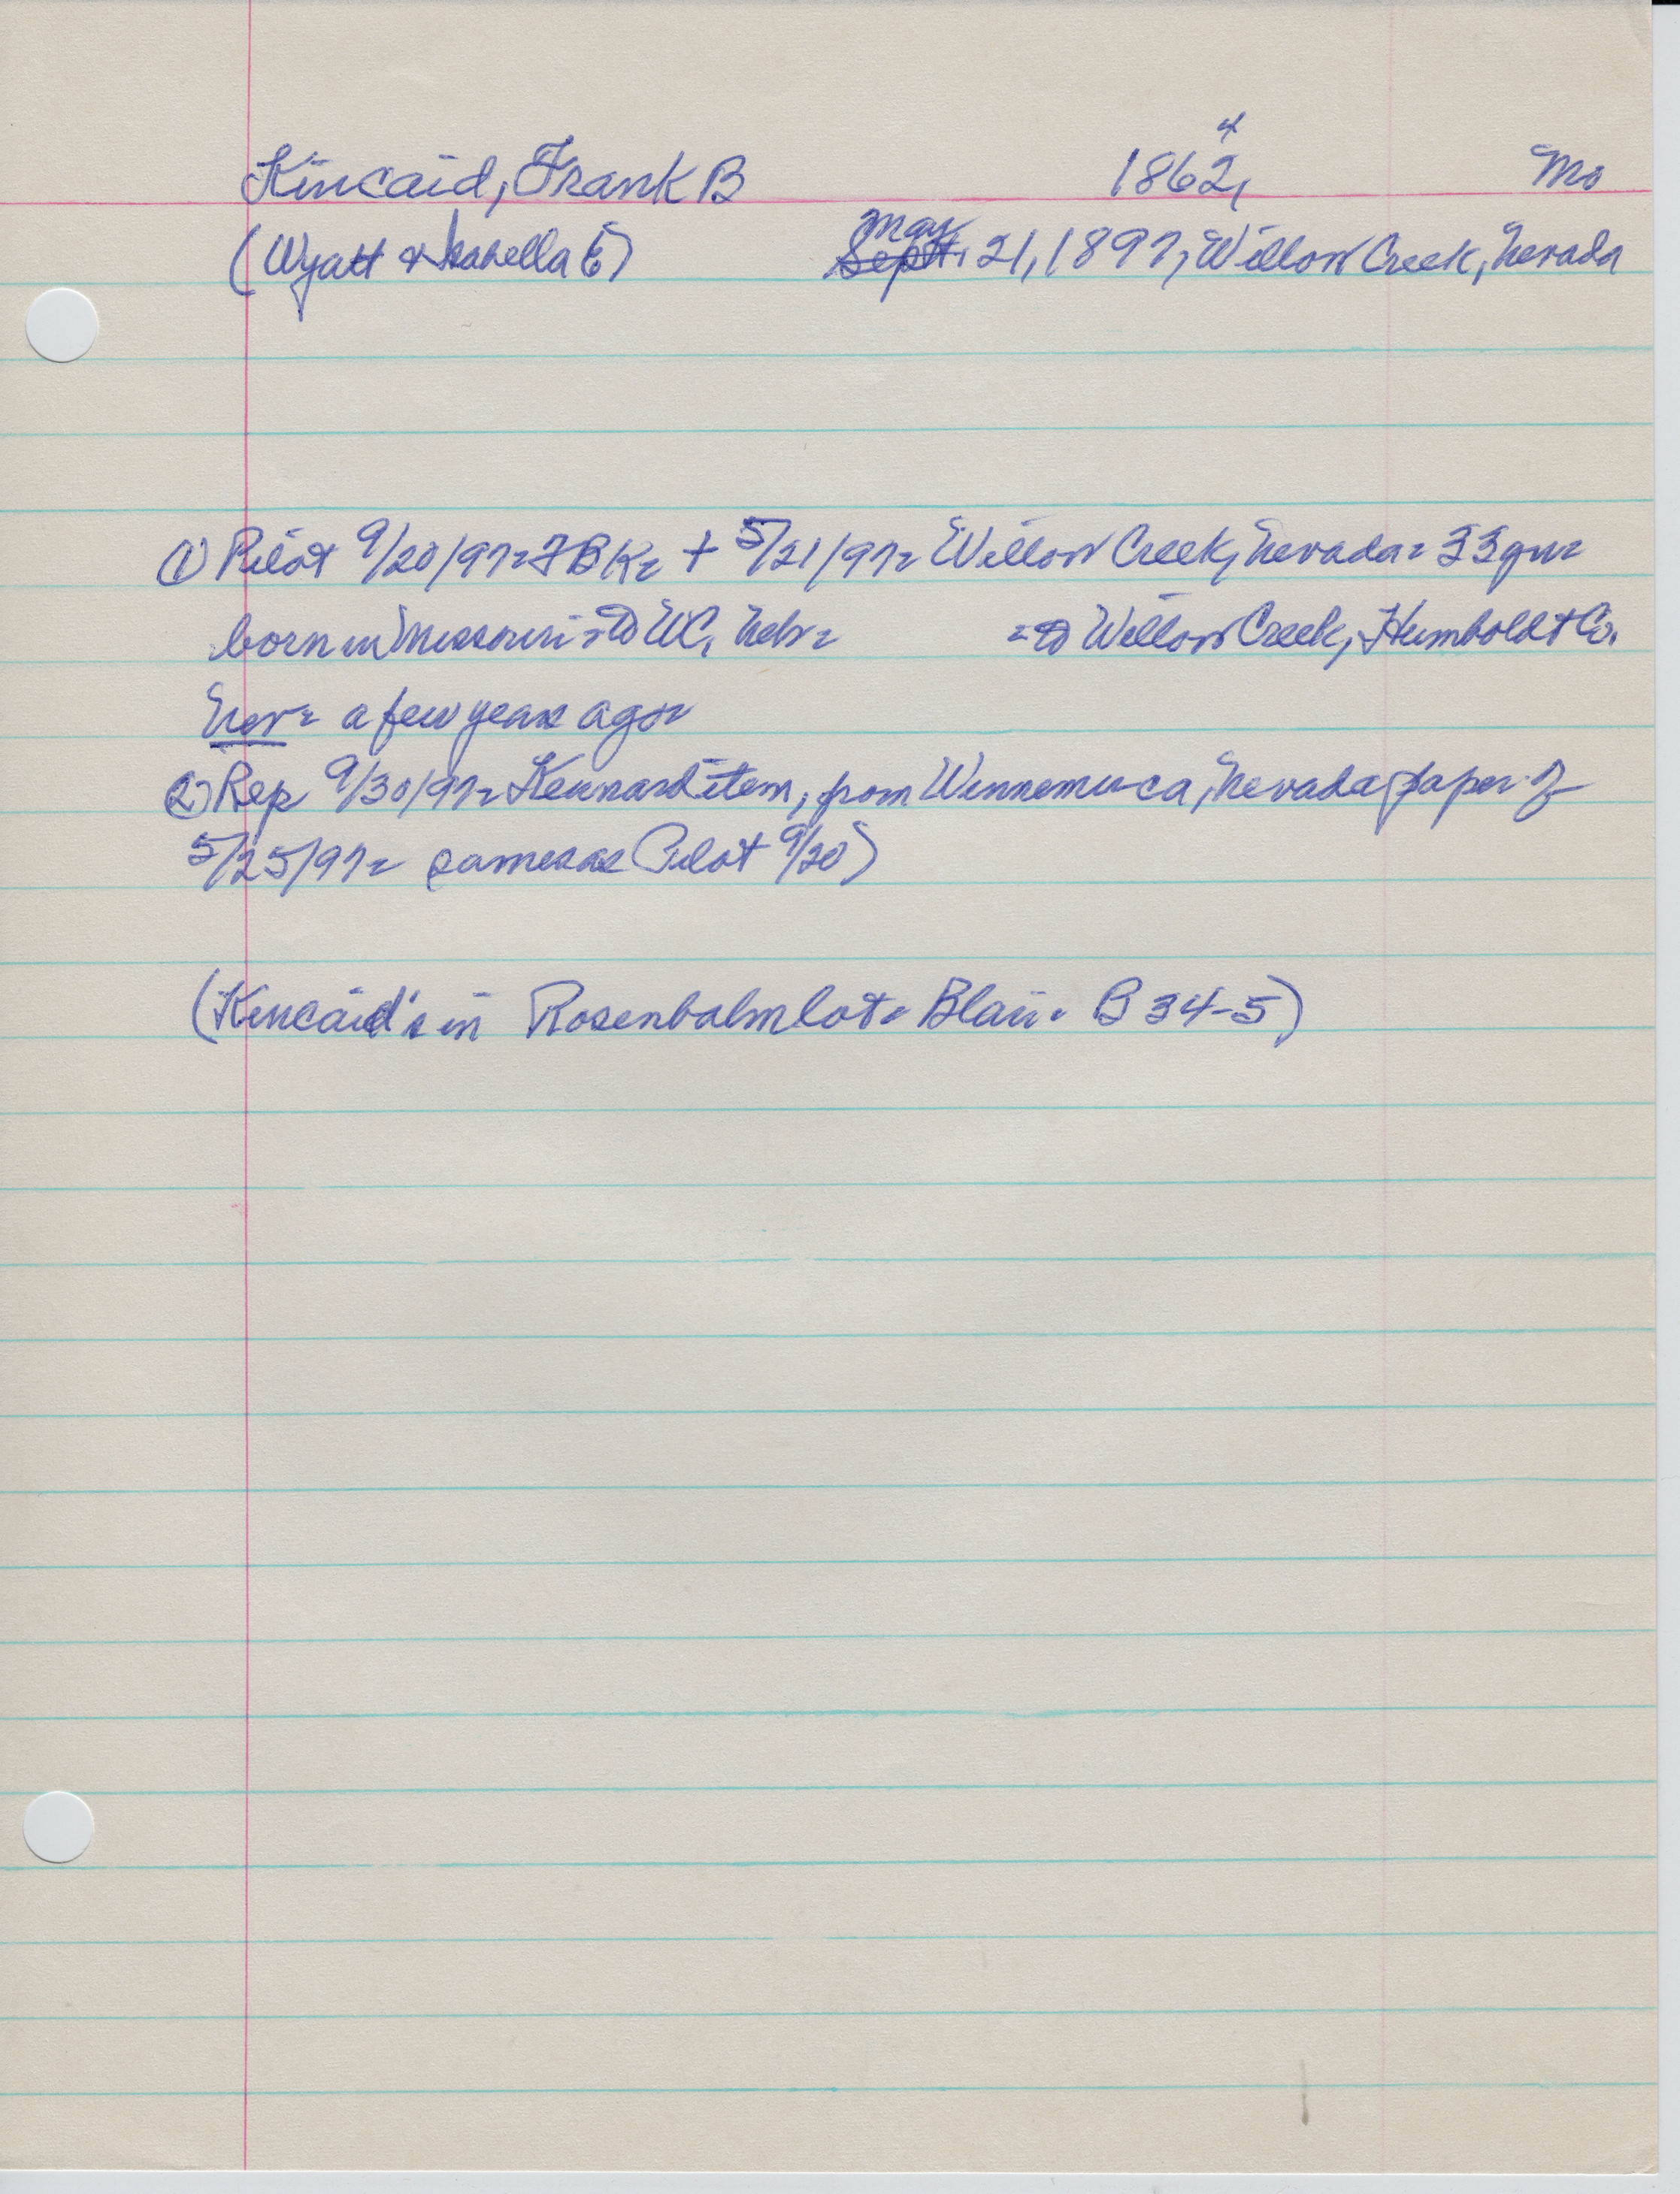 4
Kincaid, Frank B 1862, Mo
(Wyatt & Isabella E) May Sept. 21, 1897, Willow Creek, Nevada
① Pilot 9/20/97= F B K= + 5/21/97= Willow Creek, Nevada= 33 yrs=
born in Missouri= to WC, Neb= = to Willow Creek, Humboldt Co.
Nev= a few years ago=
② Rep 9/30/97= Kennard item, from Winnemucca, Nevada paper of
5/25/97= same as Pilot 9/20)
(Kincaid's in Rosenbalm lot= Blair= B 34-5)